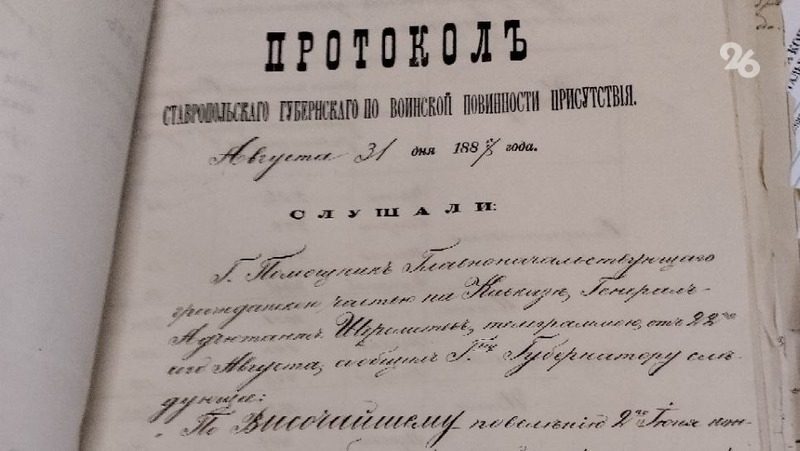 26
ПРОТОКОЛЪ
СТАВРОПОЛЬСКАГО ГУБЕРНСКАГО ПО ВОИНСКОЙ ПОВИННОСТИ ПРИСУТСТВІЯ.
Августа 31 дня 188 года.
СЛУШАЛИ:
Г. Помощникъ Главноначальствующаго
гражданскою частью на Кавказѣ, Генералъ-
Адъютантъ Шереметьевъ, телеграммою, отъ 22го
сего Августа, сообщилъ Гну Губернатору слѣ
дующее:
По Высочайшему повелѣнію 2го Іюня